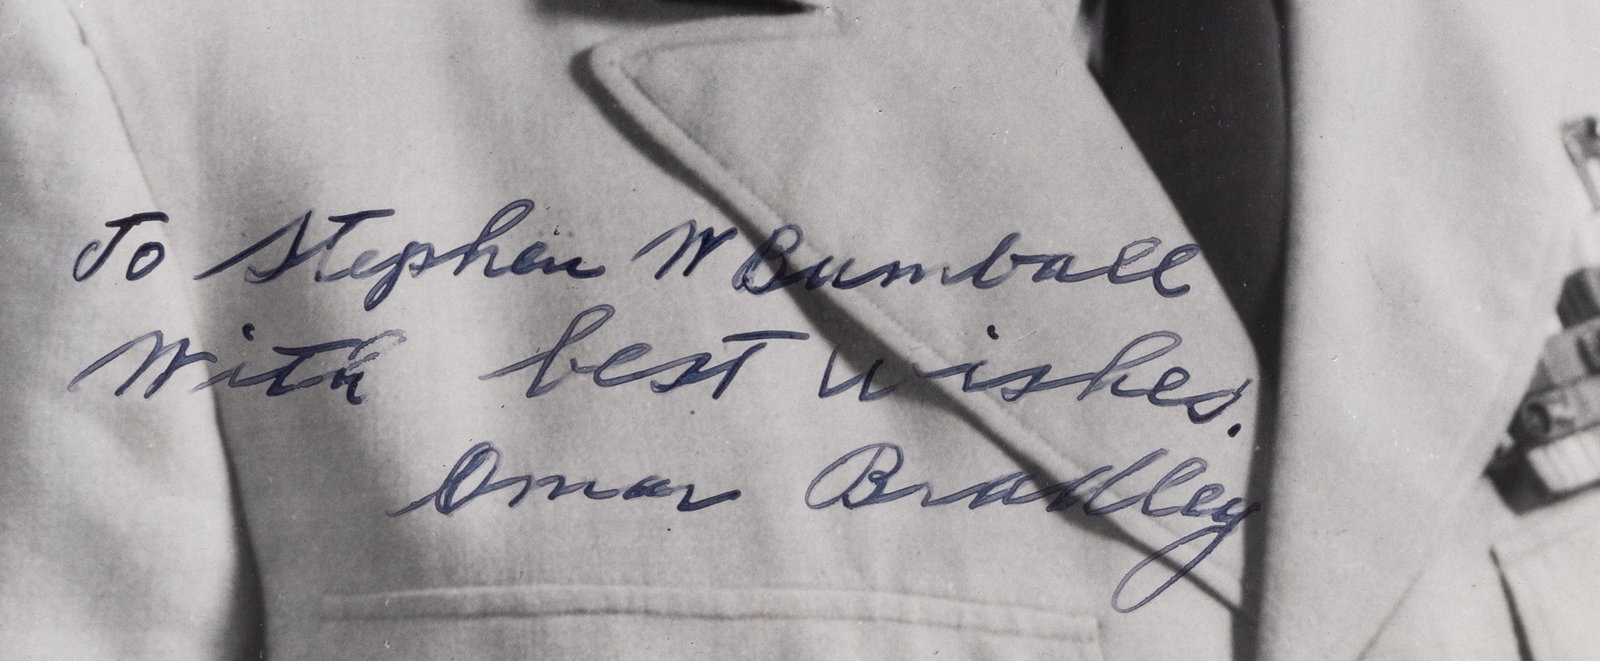 To Stephen W Bumball
With best wishes.
Omar Bradley